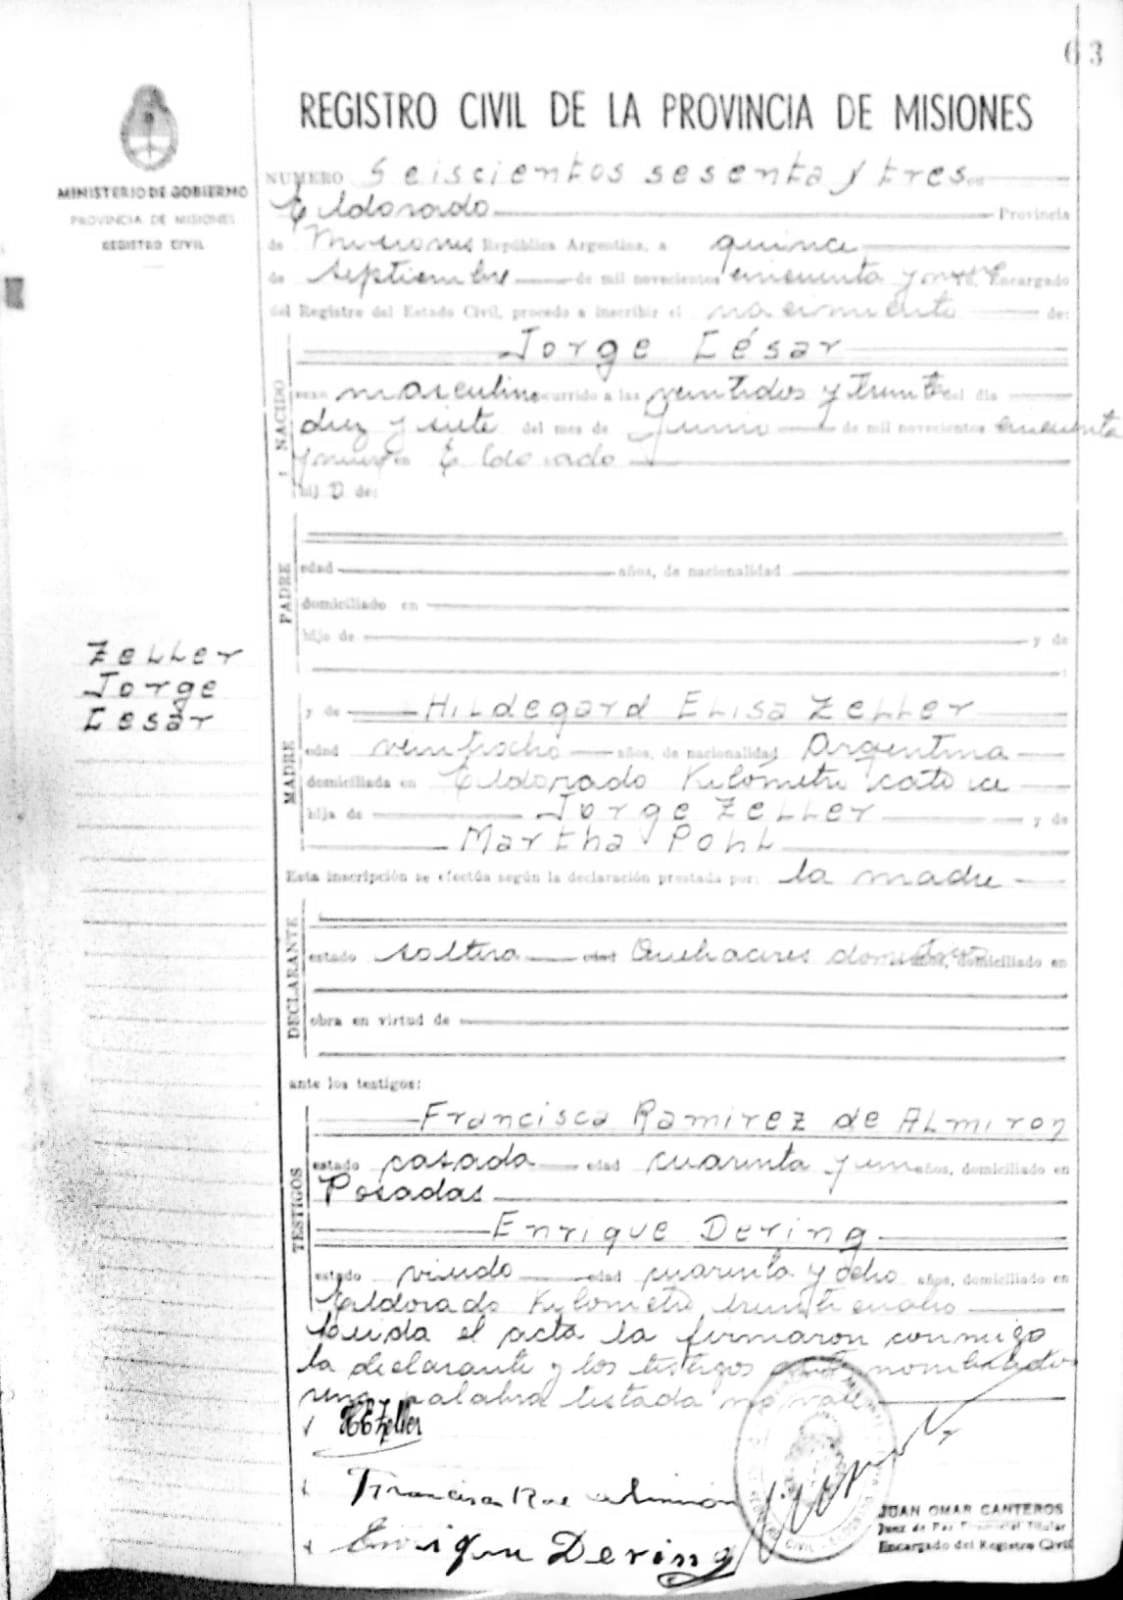 63
REGISTRO CIVIL DE LA PROVINCIA DE MISIONES
MINISTERIO DE GOBIERNO
PROVINCIA DE MISIONES
REGISTRO CIVIL
NUMERO Seiscientos sesenta y tres en
Eldorado Provincia
de Misiones República Argentina, a quince
de Septiembre de mil novecientos cincuenta y nueve Encargado
del Registro del Estado Civil, procedo a inscribir el nacimiento de:
Jorge César
NACIDO
sexo masculino ocurrido a las veintidos y treinta del dia
diez y siete del mes de Junio de mil novecientos cincuenta
y nueve en Eldorado
hij o de:
PADRE
edad años, de nacionalidad
domiciliado en
hijo de y de
Zeller
Jorge
Cesar
MADRE
y de Hildegard Elisa Zeller
edad veintiocho años, de nacionalidad Argentina
domiciliada en Eldorado Kilómetro catorce
hija de Jorge Zeller y de
Martha Pohl
Esta inscripción se efectúa según la declaración prestada por: la madre
DECLARANTE
estado soltera edad Quehaceres domesticos domiciliado en
obra en virtud de
ante los testigos:
TESTIGOS
Francisca Ramirez de Almiron
estado casada edad cuarenta y un años, domiciliado en
Posadas
Enrique Dering
estado viudo edad cuarenta y ocho años, domiciliado en
Eldorado Kylometro
Leida el acta la firmaron conmigo
la declarante y los testigos
una palabra testada no vale
HEZeller
Francisca R de Almirón
Enrique Dering
JUAN OMAR CANTEROS
Juez de Paz Titular
Encargado del Registro Civil